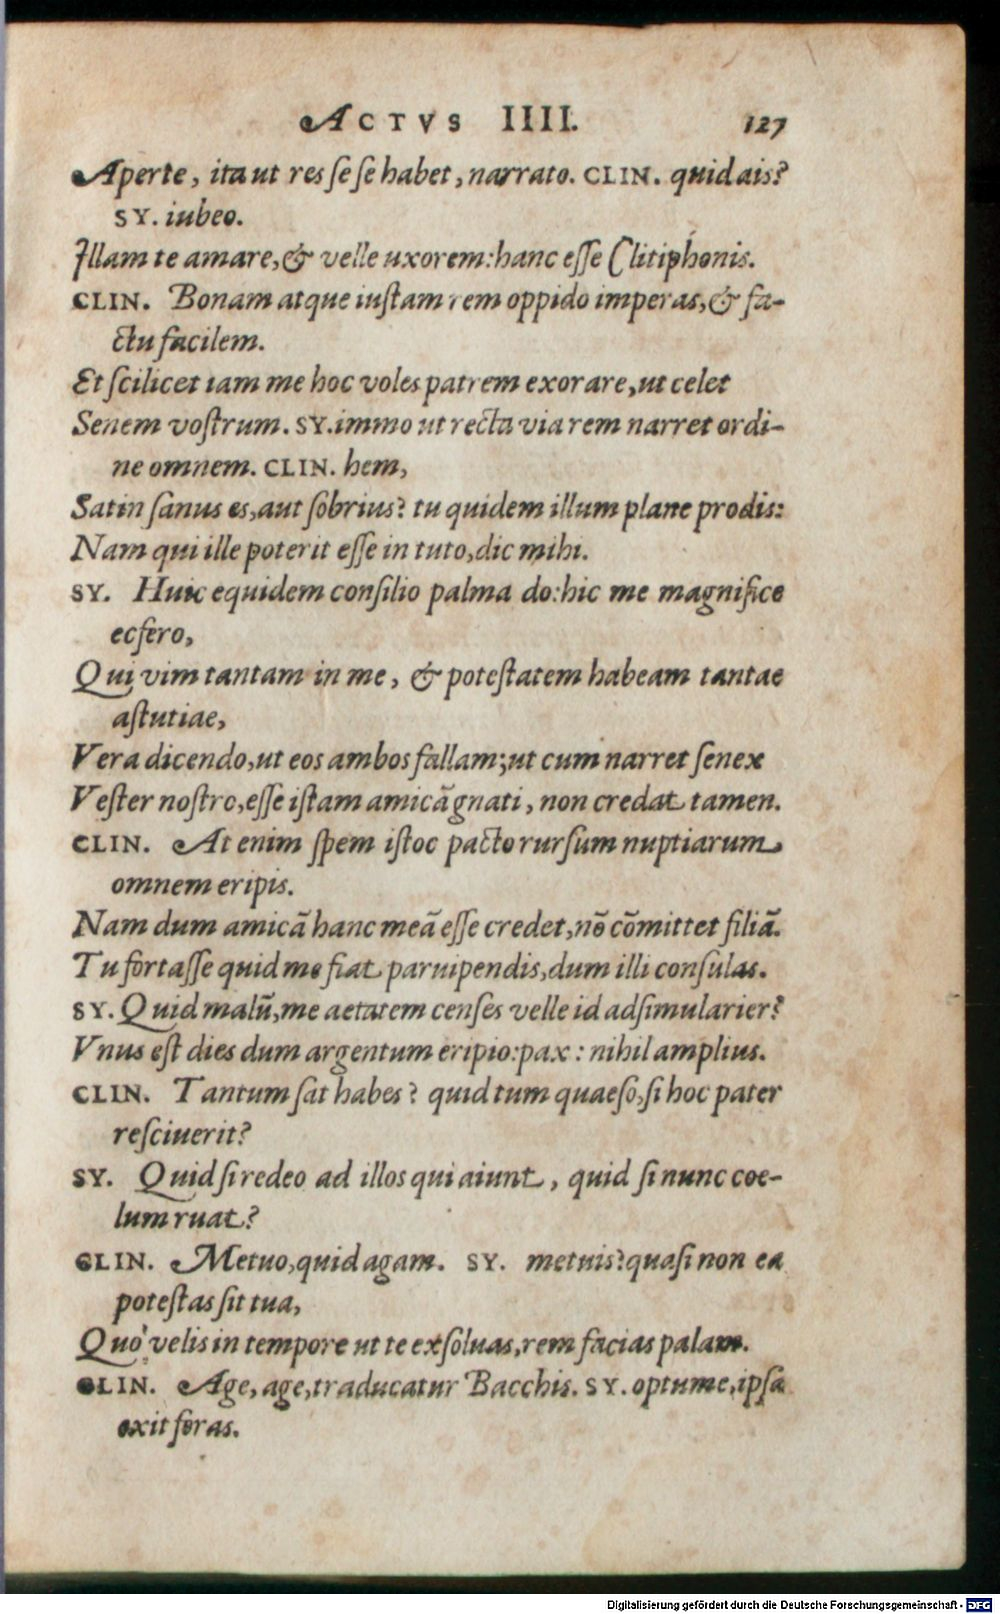 ACTVS IIII. 127
Aperte, ita ut res sese habet, narrato. CLIN. quid ais?
SY. iubeo.
Illam te amare, & velle uxorem: hanc esse Clitiphonis.
CLIN. Bonam atque iustam rem oppido imperas, & fa-
ctu facilem.
Et scilicet iam me hoc voles patrem exorare, ut celet
Senem vostrum. SY. immo ut recta via rem narret ordi-
ne omnem. CLIN. hem,
Satin sanus es, aut sobrius? tu quidem illum plane prodis:
Nam qui ille poterit esse in tuto, dic mihi.
SY. Huic equidem consilio palma do: hic me magnifice
ecfero,
Qui vim tantam in me, & potestatem habeam tantae
astutiae,
Vera dicendo, ut eos ambos fallam; ut cum narret senex
Vester nostro, esse istam amicā gnati, non credat tamen.
CLIN. At enim spem istoc pacto rursum nuptiarum
omnem eripis.
Nam dum amicā hanc meā esse credet, nō cōmittet filiā.
Tu fortasse quid me fiat parvipendis, dum illi consulas.
SY. Quid malū, me aetatem censes velle id adsimularier?
Vnus est dies dum argentum eripio: pax: nihil amplius.
CLIN. Tantum sat habes? quid tum quaeso, si hoc pater
resciuerit?
SY. Quid si redeo ad illos qui aiunt, quid si nunc coe-
lum ruat?
CLIN. Metuo, quid agam. SY. metuis? quasi non ea
potestas sit tua,
Quò velis in tempore ut te exsoluas, rem facias palam.
CLIN. Age, age, traducatur Bacchis. SY. optume, ipsa
exit foras.
Digitalisierung gefördert durch die Deutsche Forschungsgemeinschaft - DFG